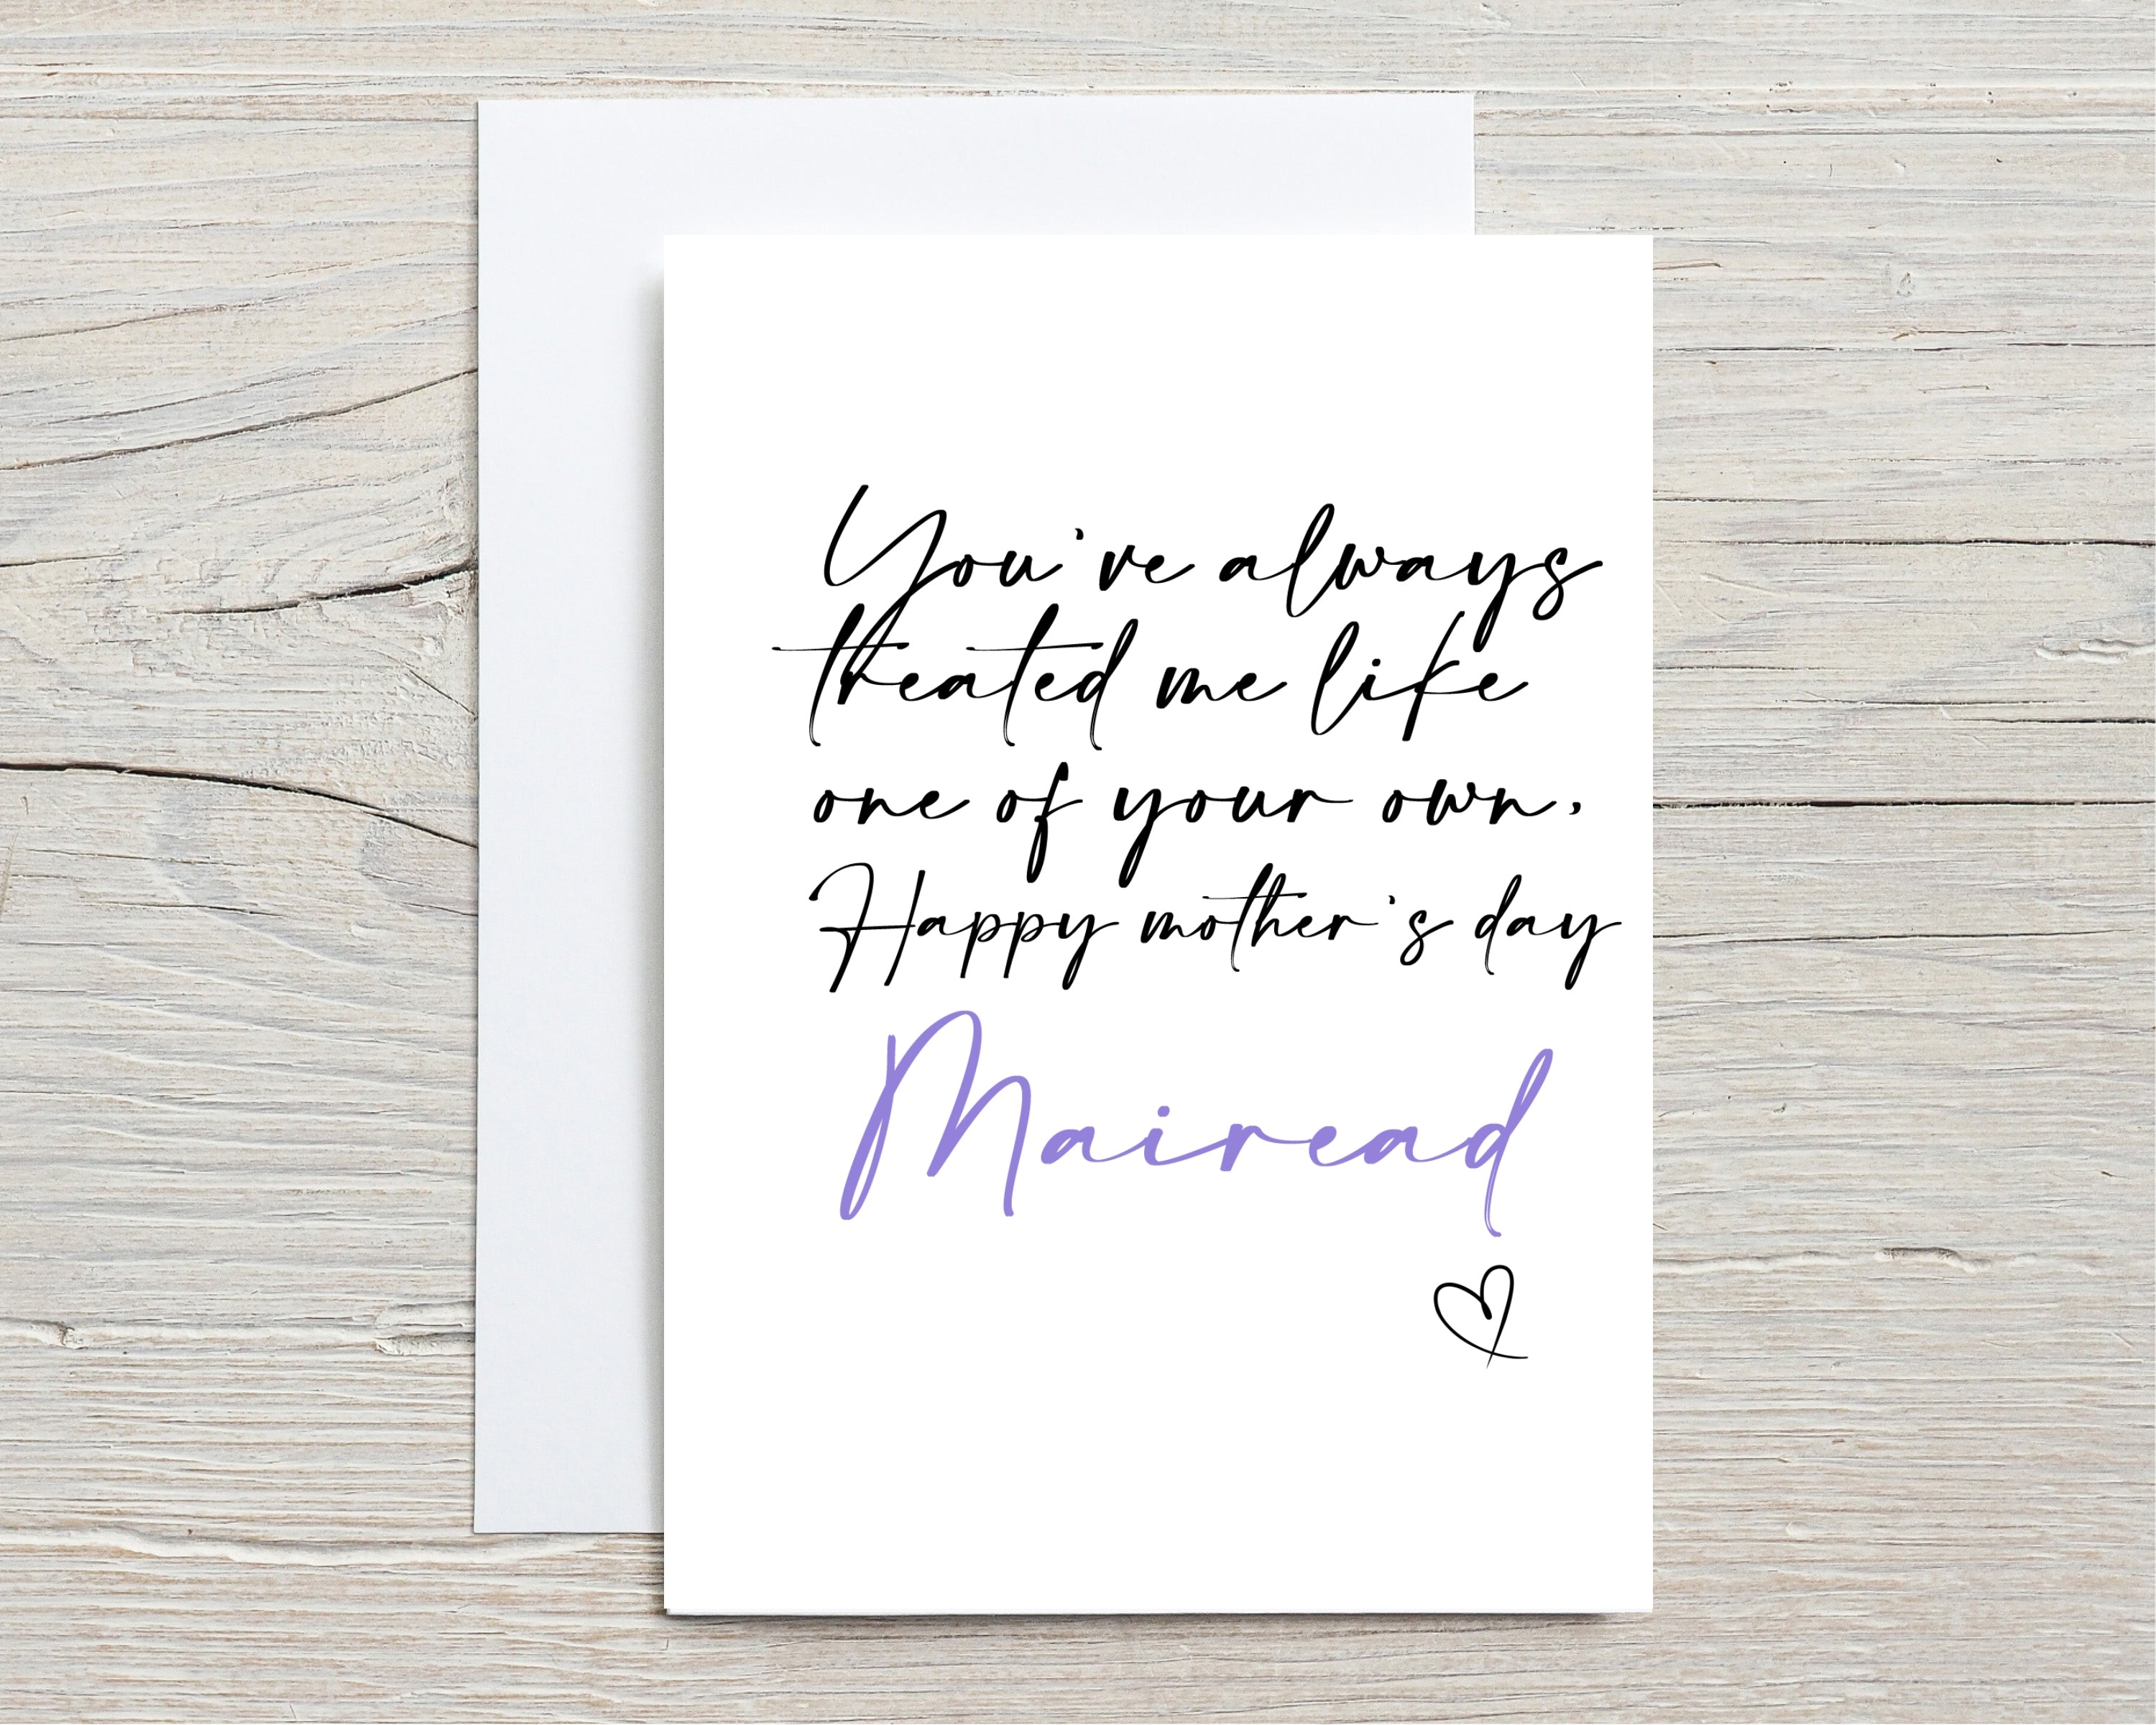 You've always
treated me like
one of your own,
Happy mother's day
Mairead